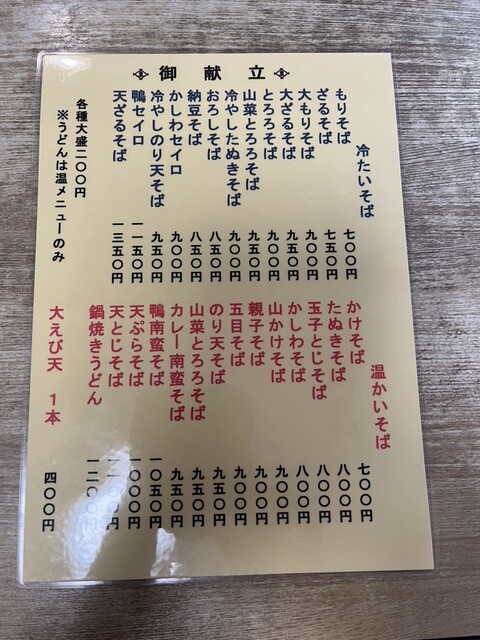 御献立
冷たいそば
もりそば 七〇〇円
ざるそば 七五〇円
大もりそば 九〇〇円
大ざるそば 九五〇円
とろろそば 九〇〇円
山菜とろろそば 九五〇円
冷やしたぬきそば 九〇〇円
おろしそば 八五〇円
納豆そば 八五〇円
かしわセイロ 九〇〇円
冷やしのり天そば 九五〇円
鴨セイロ 一一五〇円
天ざるそば 一三五〇円
各種大盛二〇〇円
※うどんは温メニューのみ
温かいそば
かけそば 七〇〇円
たぬきそば 八〇〇円
玉子とじそば 八〇〇円
かしわそば 八〇〇円
山かけそば 九〇〇円
親子そば 九〇〇円
五目そば 九〇〇円
のり天そば 九五〇円
山菜とろろそば 九五〇円
カレー南蛮そば 九五〇円
鴨南蛮そば 一〇五〇円
天ぷらそば 一〇〇〇円
天とじそば 一一〇〇円
鍋焼きうどん 一二〇〇円
大えび天 1本 四〇〇円